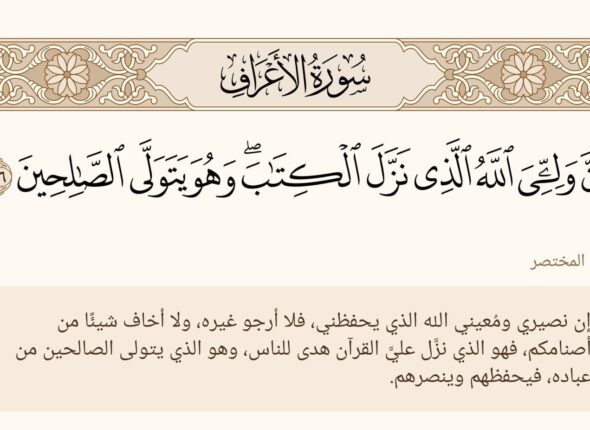 سُورَةُ الأَعْرَافِ
وَلِـِّۧيَ ٱللَّهُ ٱلَّذِى نَزَّلَ ٱلْكِتَٰبَ ۖ وَهُوَ يَتَوَلَّى ٱلصَّٰلِحِينَ
المختصر
إن نصيري ومُعيني الله الذي يحفظني، فلا أرجو غيره، ولا أخاف شيئًا من
أصنامكم، فهو الذي نزَّل عليَّ القرآن هدى للناس، وهو الذي يتولى الصالحين من
عباده، فيحفظهم وينصرهم.